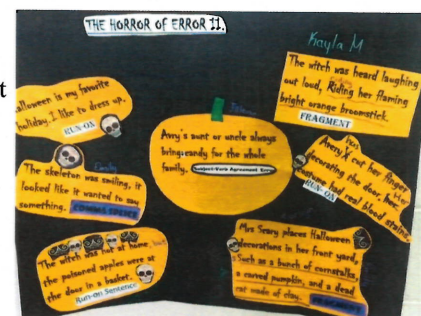 THE HORROR OF ERROR II.
t
Kayla M
The witch was heard laughing
out loud, Riding her flaming
bright orange broomstick.
FRAGMENT
alloween is my favorite
holiday. I like to dress up.
RUN-ON
The skeleton was smiling, it
looked like it wanted to say
something. COMMA SPLICE
Avry's aunt or uncle always
brings candy for the whole
family. Subject-Verb Agreement Error
Avery cut her finger
decorating the door. Her
costume had real blood stains.
RUN-ON
The witch was not at home, but
the poisoned apples were at
the door in a basket.
Run-on Sentence
Mrs Seary places Halloween
decorations in her front yard,
Such as a bunch of cornstalks,
a carved pumpkin, and a dead
cat made of clay. FRAGMENT